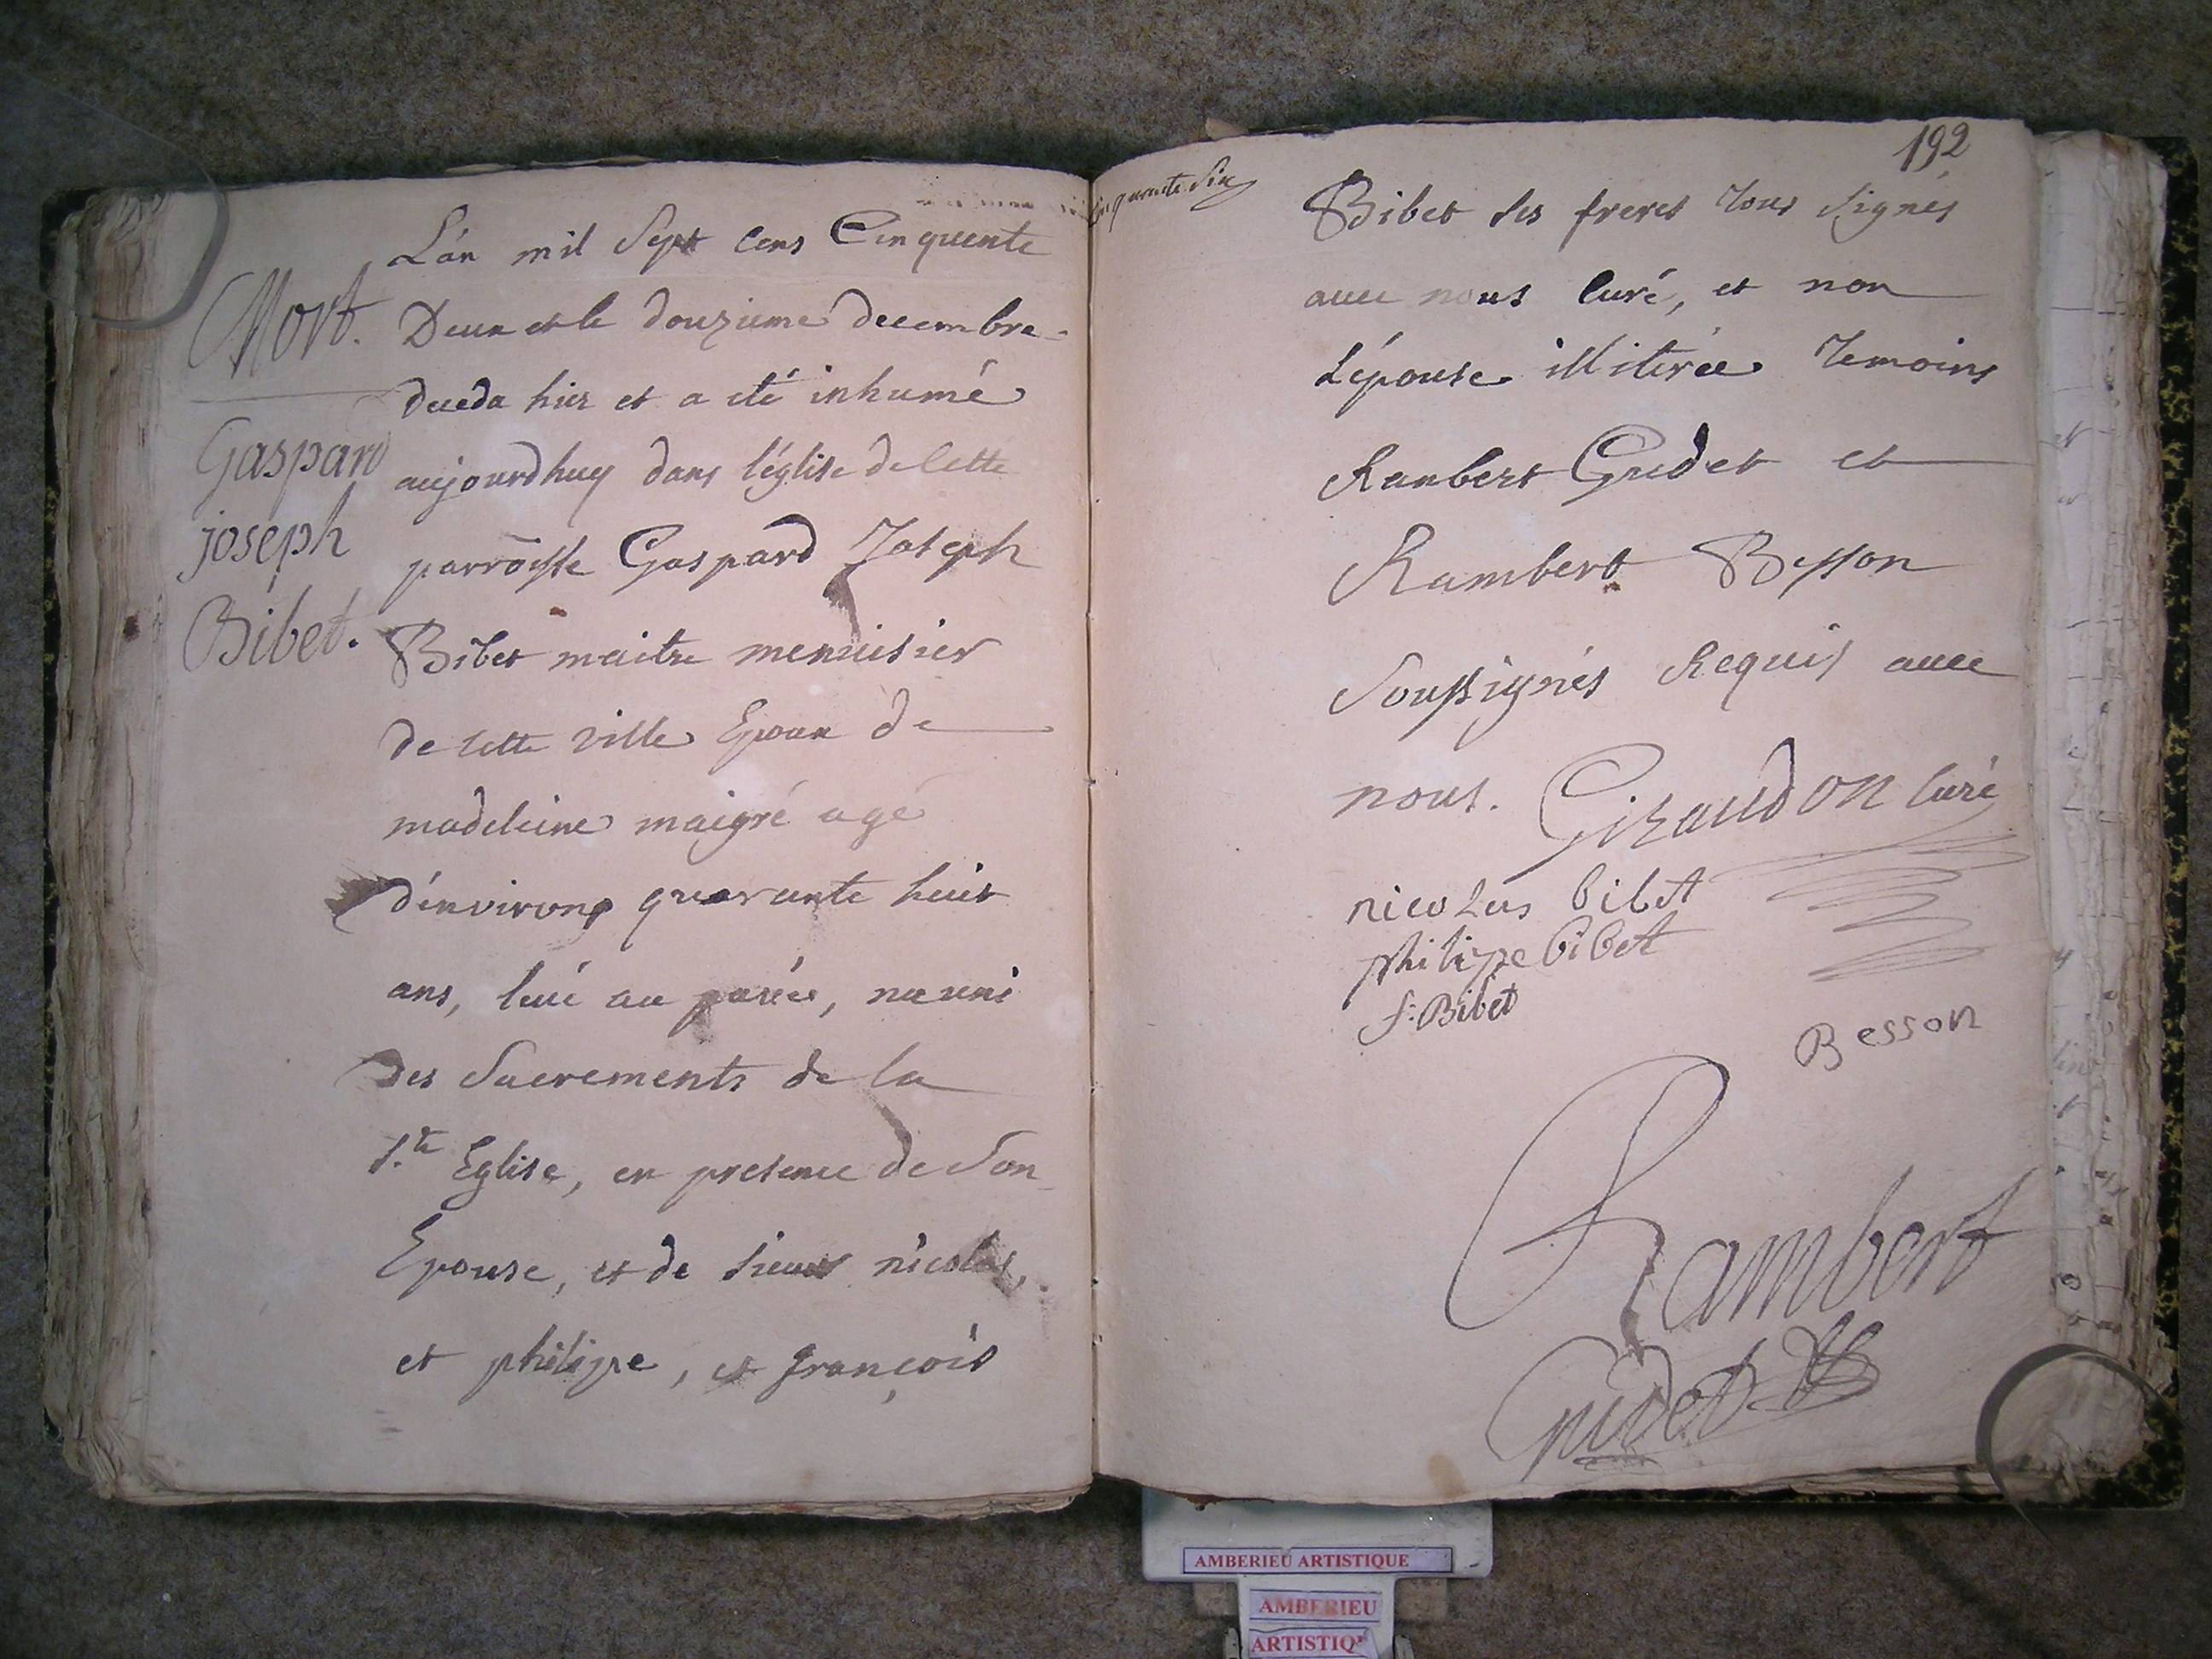 Mort.
Gaspard
joseph
Bibet.
L'an mil Sept Cens Cinquente
Deux et le douzieme decembre
deceda hier et a eté inhumé
aujourdhuy dans l'église de Cette
parroisse Gaspard Joseph
Bibet maitre menuisier
de Cette ville Epoux de
madeleine maigré agé
d'environs quarante huit
ans,
des Sacrements de la
S.te Eglise, en presence de Son
Epouse, et de sieurs nicolas,
et philippe, et françois
192
cinquante Six
Bibet ses freres Tous Signés
avec nous Curé, et non
L'épouse illiterée Temoins
Rambert Gudet et
Rambert Besson
Soussignés Requis avec
nous. Giraudon Curé
nicolas bibet
philippe bibet
f. Bibet
Besson
Rambert
Gudet
AMBERIEU ARTISTIQUE
AMBERIEU
ARTISTIQ